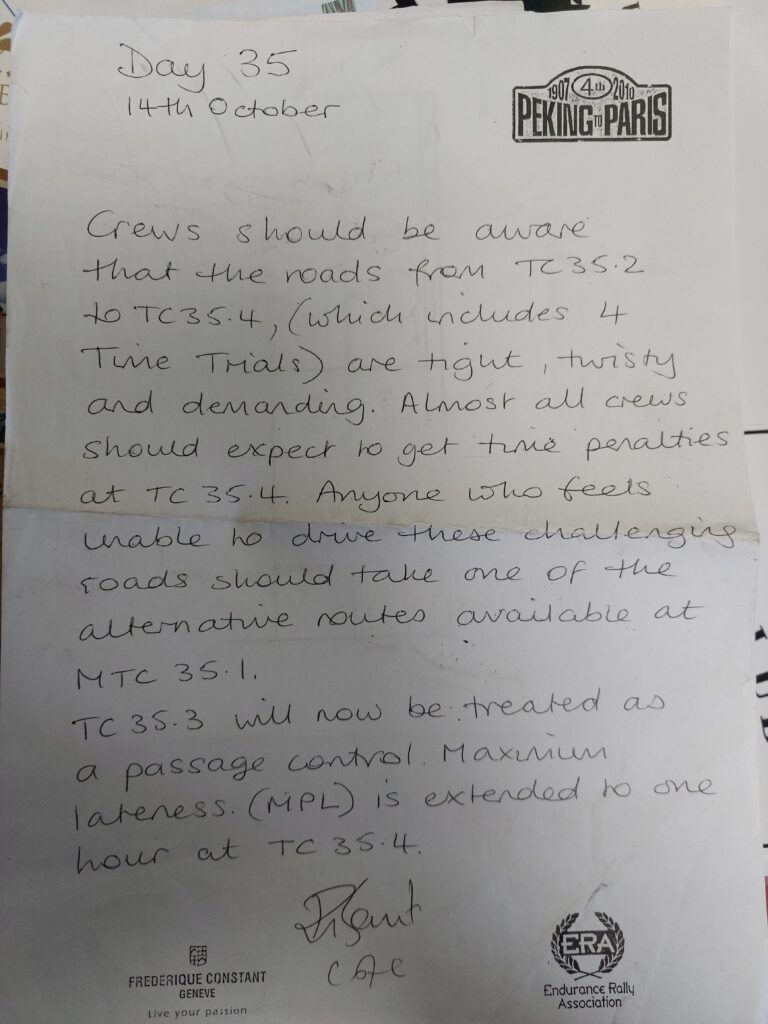 Day 35
14th October
1907 4th 2010
PEKING TO PARIS
Crews should be aware
that the roads from TC 35.2
to TC 35.4, (which includes 4
Time Trials) are tight, twisty
and demanding. Almost all crews
should expect to get time penalties
at TC 35.4. Anyone who feels
unable to drive these challenging
roads should take one of the
alternative routes available at
MTC 35.1.
TC 35.3 will now be treated as
a passage control. Maximum
lateness. (MPL) is extended to one
hour at TC 35.4.
FREDERIQUE CONSTANT
GENEVE
Live your passion
ERA
Endurance Rally
Association